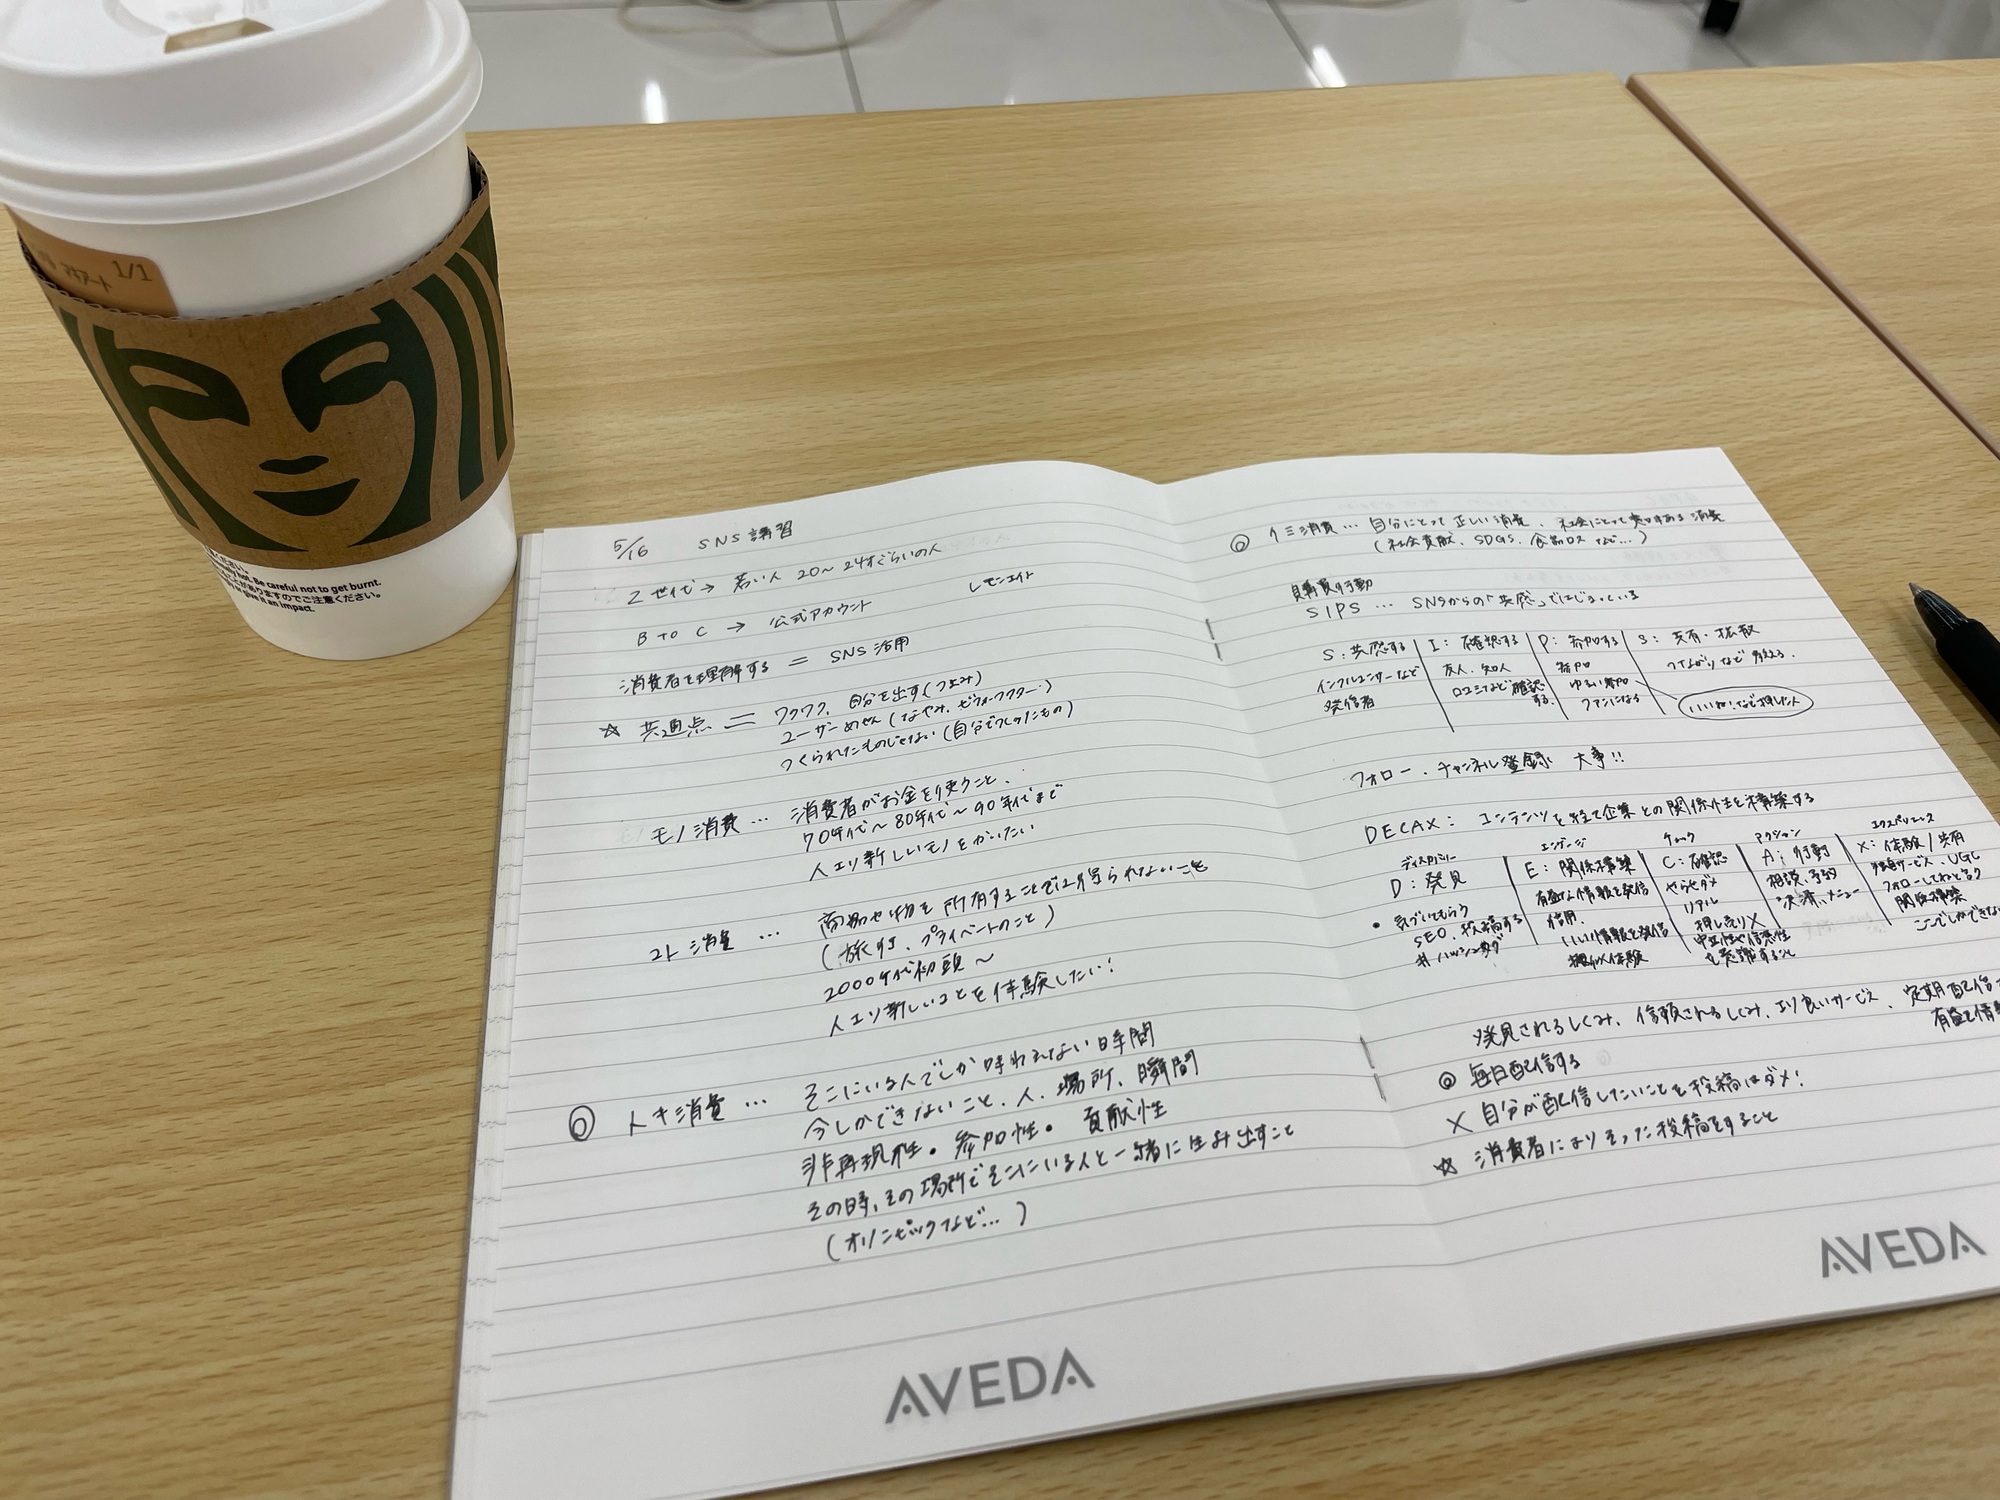 1/1
Be careful not to get burnt.
ますのでご注意ください。
it an impact.
5/16 SNS講習
Z世代→ 若い人 20〜24才ぐらいの人
レモンエイト
B to C → 公式アカウント
消費者を理解する = SNS活用
☆ 共通点 = ワクワク、自分を出す(つよみ)
ユーザーめせん(なやみ、ビフォーアフター…)
つくられたものじゃない(自分でつくったもの)
モノ消費 … 消費者がお金を使うこと、
70年代〜80年代〜90年代まで
人より新しいモノをかいたい
コト消費 … 商品や物を所有することでは得られないこと
(旅行、プライベートのこと)
2000年代初頭〜
人より新しいことを体験したい!
◎ トキ消費 … そこにいる人でしか味わえない時間
今しかできないこと、人、場所、瞬間
非再現性。参加性。貢献性
その時、その場所でそこにいる人と一緒に生み出すこと
(オリンピックなど…)
AVEDA
◎ イミ消費 … 自分にとって正しい消費、社会にとって意味ある消費
(社会貢献、SDGS、食品ロス など…)
購買行動
SIPS … SNSからの「共感」ではじまっている
S:共感する I:確認する P:参加する S:共有・拡散
インフルエンサーなど 友人、知人 参加 つながりなど 考える.
発信者 口コミなど確認する. ゆるい参加
ファンになる いいね!など押した人
フォロー、チャンネル登録 大事!!
DECAX: コンテンツを経て企業との関係性を構築する
ディスカバリー エンゲージ チェック アクション エクスペリエンス
D:発見 E:関係構築 C:確認 A:行動 X:体験/共有
・気づいてもらう 有益な情報を発信 やらせダメ 相談、予約 サービス、UGC
SEO、投稿する 信用. リアル 決済、メニュー フォローしてねと言う
# ハッシュタグ いい情報を発信 押し売り× 関係構築
体験 中立性や信憑性 ここでしかできな
も意識すること
発見されるしくみ、信頼されるしくみ、より良いサービス、定期配信
有益な情
◎ 毎日配信する
× 自分が配信したいことを投稿はダメ!
☆ 消費者によりそった投稿をすること
AVEDA